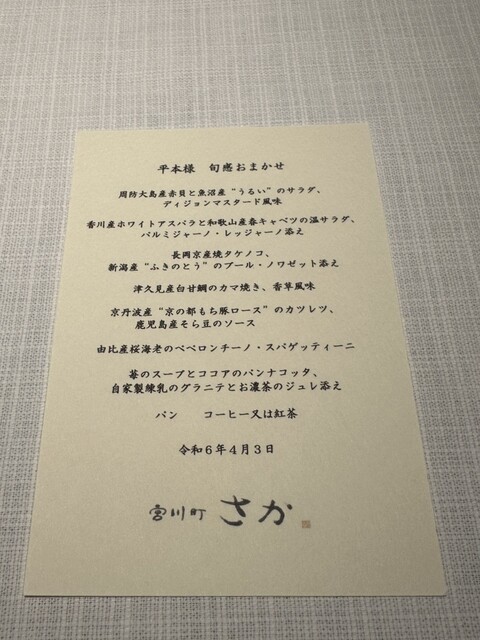 平本様　旬感おまかせ
周防大島産赤貝と魚沼産“うるい”のサラダ、
ディジョンマスタード風味
香川産ホワイトアスパラと和歌山産春キャベツの温サラダ、
パルミジャーノ・レッジャーノ添え
長岡京産焼タケノコ、
新潟産“ふきのとう”のブール・ノワゼット添え
津久見産白甘鯛のカマ焼き、香草風味
京丹波産“京の都もち豚ロース”のカツレツ、
鹿児島産そら豆のソース
由比産桜海老のペペロンチーノ・スパゲッティーニ
苺のスープとココアのパンナコッタ、
自家製練乳のグラニテとお濃茶のジュレ添え
パン　　コーヒー又は紅茶
令和６年４月３日
宮川町 さか